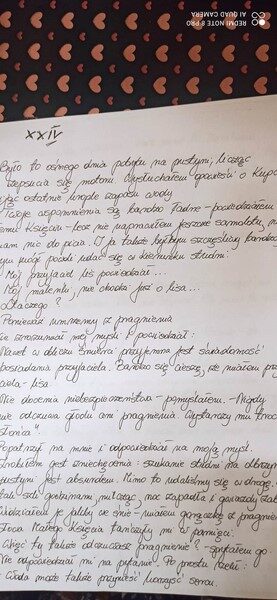 REDMI NOTE 8 PRO
AI QUAD CAMERA
XXIV
Było to ósmego dnia pobytu na pustyni, licząc
zepsucia się motoru. Wysłuchałem opowieści o Kupc
jąc ostatnie krople zapasu wody
- Twoje wspomnienia są bardzo ładne - powiedziałem
Księcia - lecz nie naprawiłem jeszcze samolotu, n
mam nic do picia. I ja także byłbym szczęśliwy
mógł udać się w kierunku studni!
- Mój przyjaciel lis powiedział...
- Mój maleńki, nie chodzi już o lisa...
- Dlaczego?
- Ponieważ umrzemy z pragnienia
nie zrozumiał mej myśli i powiedział:
- Nawet w obliczu śmierci przyjemna jest świadomość
posiadania przyjaciela. Bardzo się cieszę, że miałem prz
ciela - lisa.
Nie docenia niebezpieczeństwa - pomyślałem. - Nigdy
nie odczuwa głodu ani pragnienia. Wystarczy mu troc
słońca"
Popatrzył na mnie i odpowiedział na moją myśl
zrobiłem gest zniechęcenia: szukanie studni na olbrzym
pustyni jest absurdem. Mimo to udaliśmy się w drogę.
tak szli godzinami, milcząc, noc zapadła i gwiazdy
Widziałem je jakby we śnie miałem gorączkę z pragnien
Słowa Małego Księcia tańczyły mi w pamięci.
- Więc ty także odczuwasz pragnienie? - spytałem go
Nie odpowiedział mi na pytanie. Po prostu rzekł:
- Woda może także przynieść korzyść sercu.